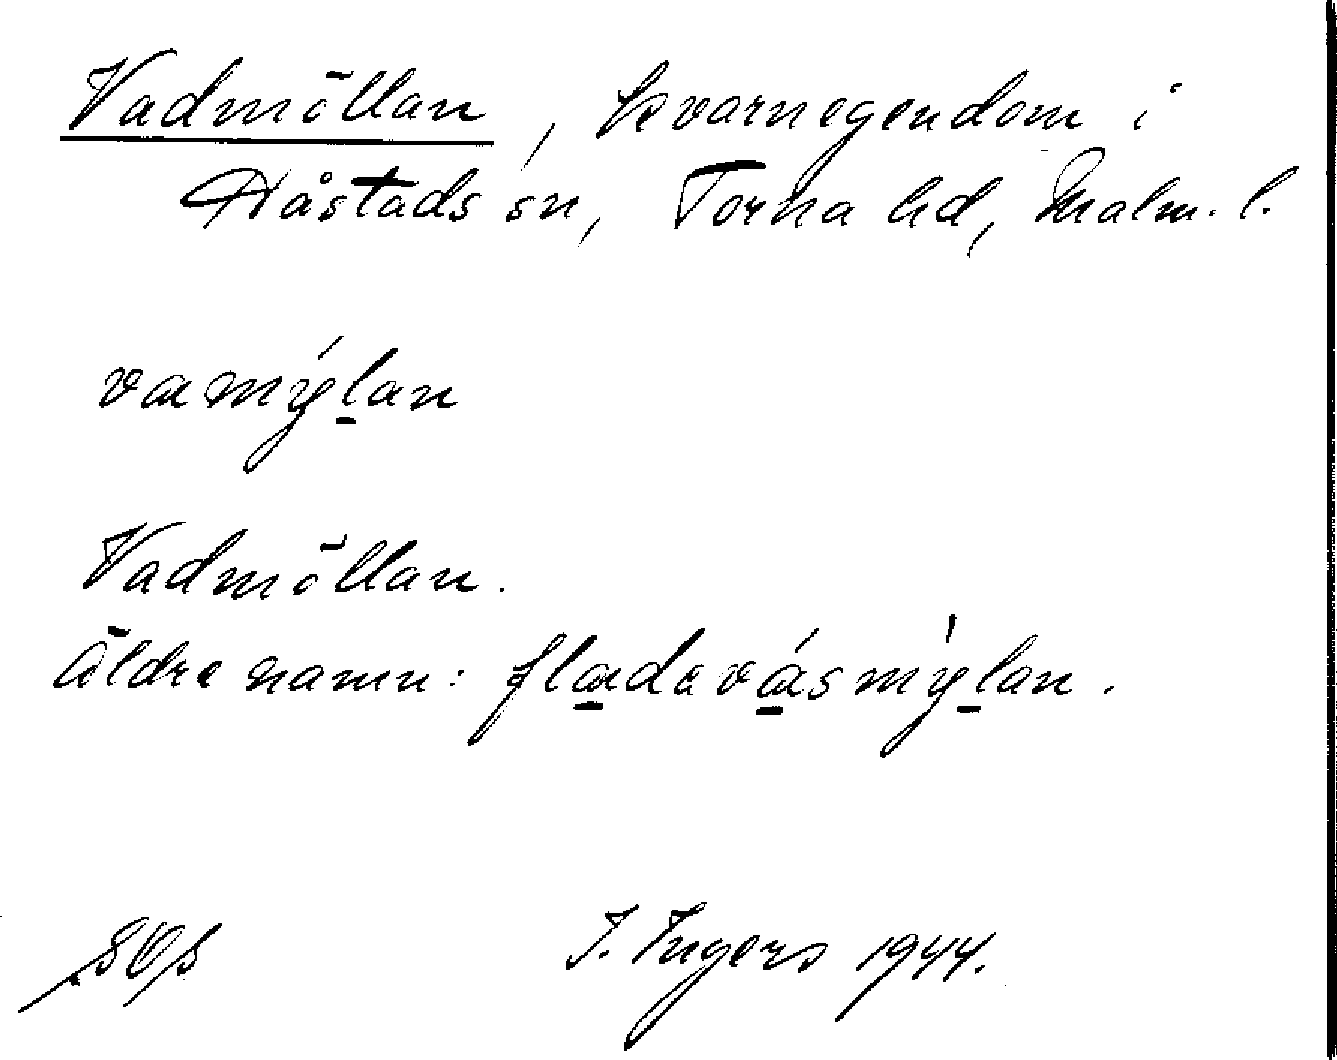 Vadmöllan, kvarnegendom i
Håstads sn, Torna hd, Malm. l.
vamýlan
Vadmöllan.
Äldre namn: fladavásmýlan.
I. Ingers 1944.